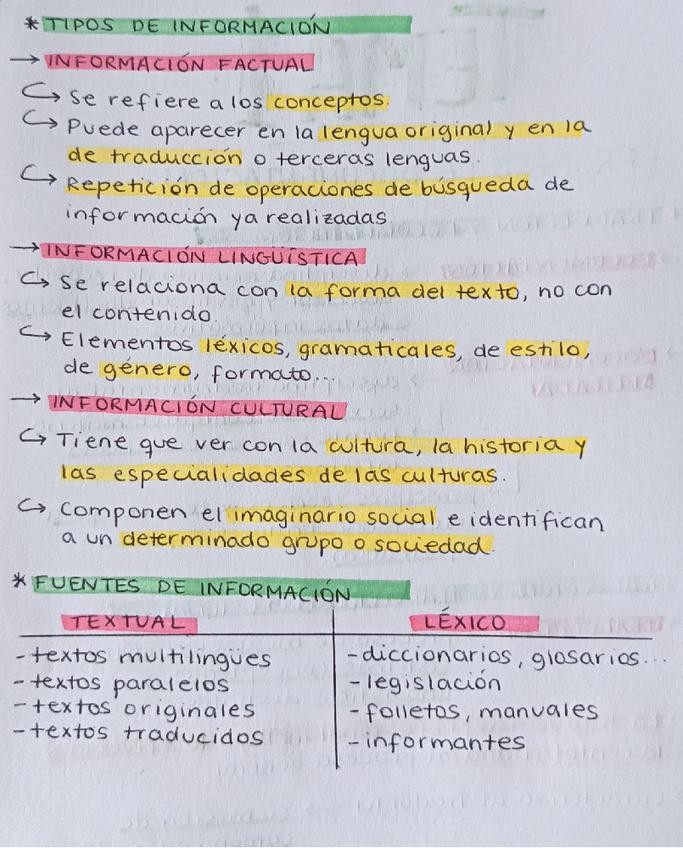 * TIPOS DE INFORMACIÓN
→ INFORMACIÓN FACTUAL
↪ Se refiere a los conceptos.
↪ Puede aparecer en la lengua original y en la
de traducción o terceras lenguas.
↪ Repetición de operaciones de búsqueda de
información ya realizadas
→ INFORMACIÓN LINGÜÍSTICA
↪ Se relaciona con la forma del texto, no con
el contenido.
↪ Elementos léxicos, gramaticales, de estilo,
de género, formato...
→ INFORMACIÓN CULTURAL
↪ Tiene que ver con la cultura, la historia y
las especialidades de las culturas.
↪ Componen el imaginario social e identifican
a un determinado grupo o sociedad.
* FUENTES DE INFORMACIÓN
TEXTUAL
- textos multilingües
- textos paralelos
- textos originales
- textos traducidos
LÉXICO
- diccionarios, glosarios...
- legislación
- folletos, manuales
- informantes